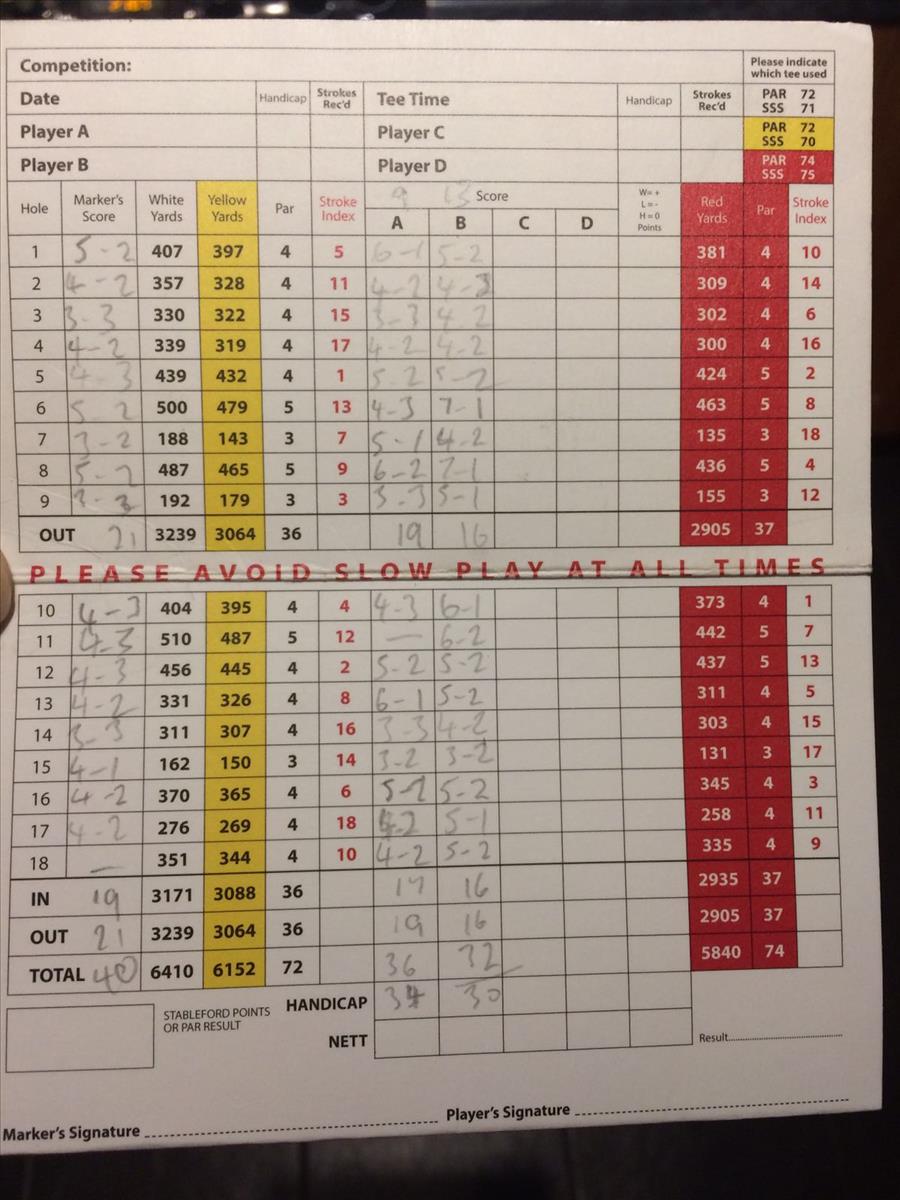 Competition: Please indicate which tee used
Date Handicap Strokes Rec'd Tee Time Handicap Strokes Rec'd PAR 72 SSS 71
Player A Player C PAR 72 SSS 70
Player B Player D PAR 74 SSS 75
Hole Marker's Score White Yards Yellow Yards Par Stroke Index 9 13 Score W=+ L=- H=0 Points Red Yards Par Stroke Index
A B C D
1 5-2 407 397 4 5 6-1 5-2 381 4 10
2 4-2 357 328 4 11 4-2 4-3 309 4 14
3 3-3 330 322 4 15 3-3 4-2 302 4 6
4 4-2 339 319 4 17 4-2 4-2 300 4 16
5 4-3 439 432 4 1 5-2 5-2 424 5 2
6 5-2 500 479 5 13 4-3 7-1 463 5 8
7 3-2 188 143 3 7 5-1 4-2 135 3 18
8 5-2 487 465 5 9 6-2 7-1 436 5 4
9 3-3 192 179 3 3 3-3 5-1 155 3 12
OUT 21 3239 3064 36 19 16 2905 37
PLEASE AVOID SLOW PLAY AT ALL TIMES
10 4-3 404 395 4 4 4-3 6-1 373 4 1
11 4-3 510 487 5 12 — 6-2 442 5 7
12 4-3 456 445 4 2 5-2 5-2 437 5 13
13 4-2 331 326 4 8 6-1 5-2 311 4 5
14 3-3 311 307 4 16 3-3 4-2 303 4 15
15 4-1 162 150 3 14 3-2 3-2 131 3 17
16 4-2 370 365 4 6 5-2 5-2 345 4 3
17 4-2 276 269 4 18 4-2 5-1 258 4 11
18 — 351 344 4 10 4-2 5-2 335 4 9
IN 19 3171 3088 36 17 16 2935 37
OUT 21 3239 3064 36 19 16 2905 37
TOTAL 40 6410 6152 72 36 32 5840 74
STABLEFORD POINTS OR PAR RESULT HANDICAP 34 30
NETT Result
Marker's Signature Player's Signature